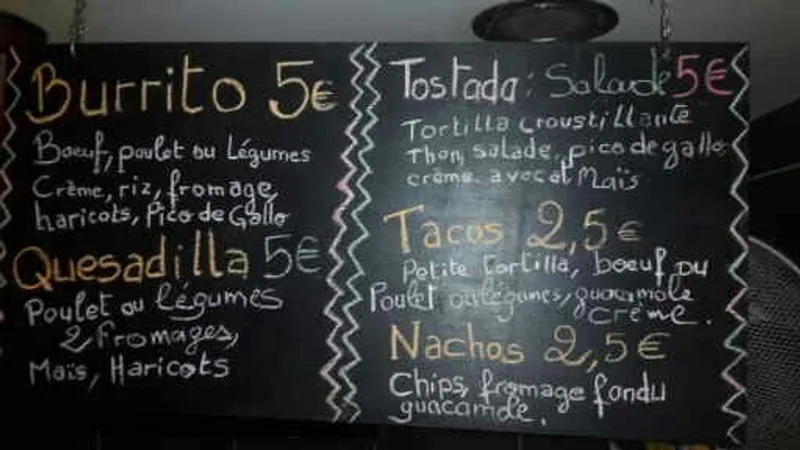 Burrito 5€
Boeuf, poulet ou Légumes
Crème, riz, fromage,
haricots, Pico de Gallo
Quesadilla 5€
Poulet ou légumes
2 fromages,
Maïs, Haricots
Tostada: Salade 5€
Tortilla croustillante
Thon, salade, pico de gallo
crème avocat Maïs
Tacos 2,5€
Petite tortilla, boeuf ou
Poulet ou légumes, guacamole
crème.
Nachos 2,5€
Chips, fromage fondu
guacamole.